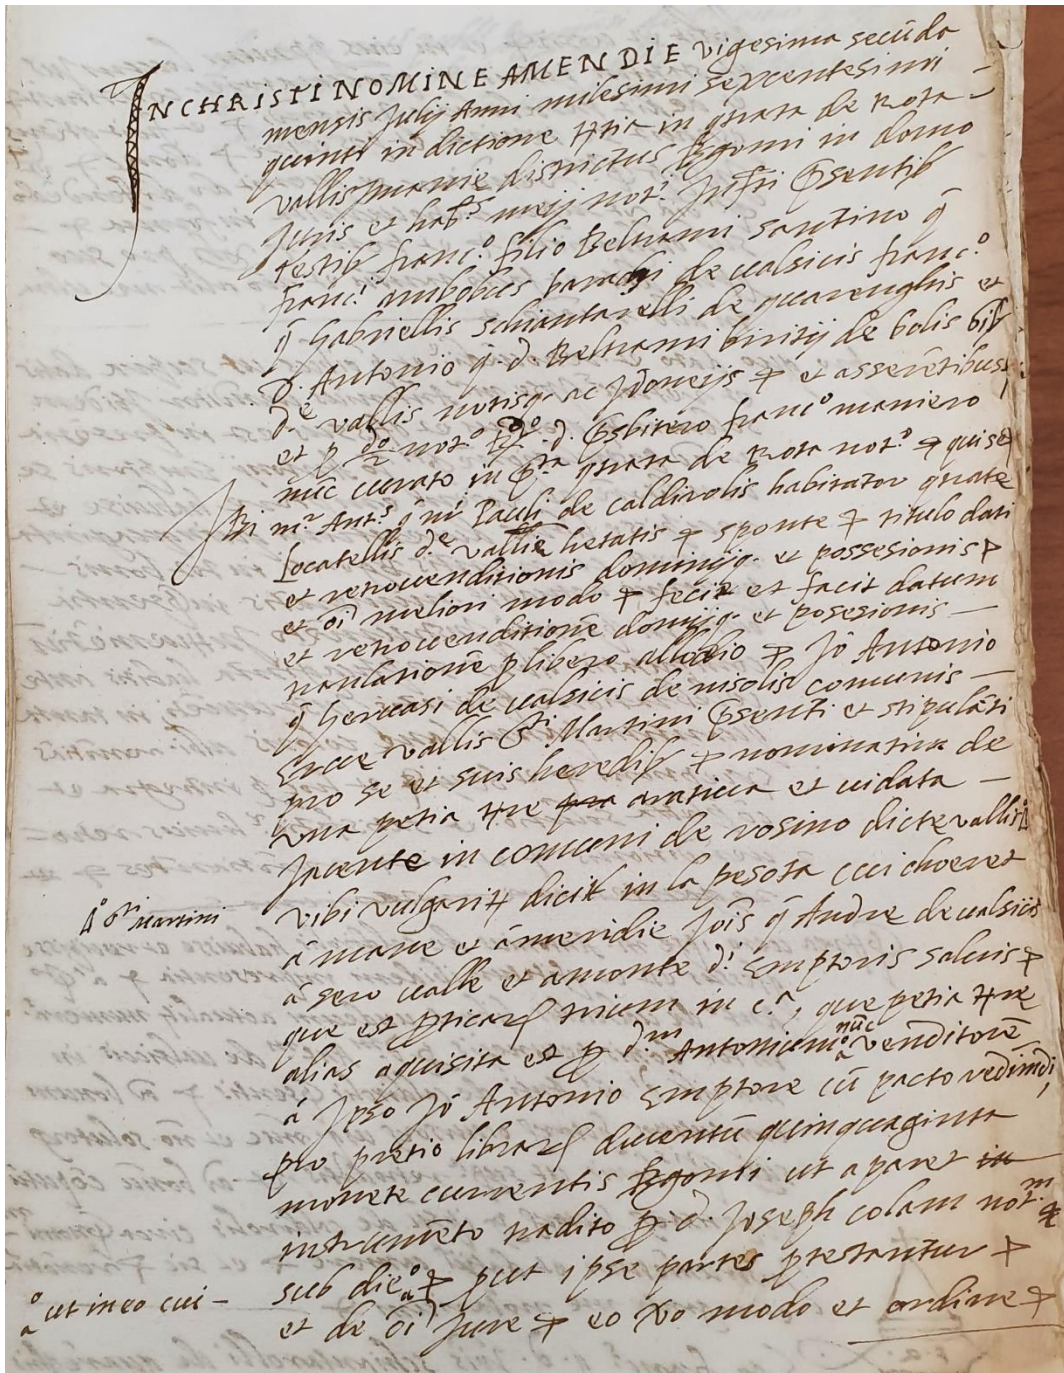 IN CHRISTI NOMINE AMEN DIE vigesima secūda
mensis Julij Anni milesimi sexcentesimi
quinti indictione tertia in qrata de Rota
vallis imanie districtus Bgomi in domo
Juris et habs meij not. Jnfri psentib
testib franc.º filio Beltrami santino q̄
franc.i de ualsicis franc.º
q̄ Gabriellis schiantarelli de quarenghis et
D. Antonio q. d. Beltrami de bolis
d.e vallis notisq. ac Jdoneijs et asserētibus
et p not.º d. psbitero franc.º maniero
nūc curato in qrata de Rota not.º qui se
Jbi m.r Ant.s q̄ m.i Pauli de caldirolis habitator qrate
Locatellis d.e vallis hetatis sponte titulo dati
et retrouenditionis dominijq. et possesionis
et oi meliori modo fecit et facit datum
et retrouenditionē domijq. et posesionis —
p libero allodio Jō Antonio
q̄ Geruasi de ualsicis de nisolis comunis —
Erue vallis S.ti Martini psenti et stipulāti
pro se et suis heredib nominatiue de
una petia tre aratiua et uidata —
Jacente in comuni de rosino dicte vallis
vibi vulgarit dicit in la pesota cui choeret
á mane et á meridie Jois q̄ Andre de ualsicis
á sero ualle et a monte d.i Emptoris saluis
que est pticar trium in c.a, que petia tre
alias aquisita est p d.m Antonium nūc venditorē
á Jpso Jō Antonio Emptore cū pacto redimēdi,
pro pretio librar ducentū quinquaginta
monete currentis Bgomi ut aparet in
instrumēto rradito p d. Joseph colam not.m
sub die put ipse partes ptestantur
et de oi Jure eo modo et ordine
S.ti martini
ut in eo cui —